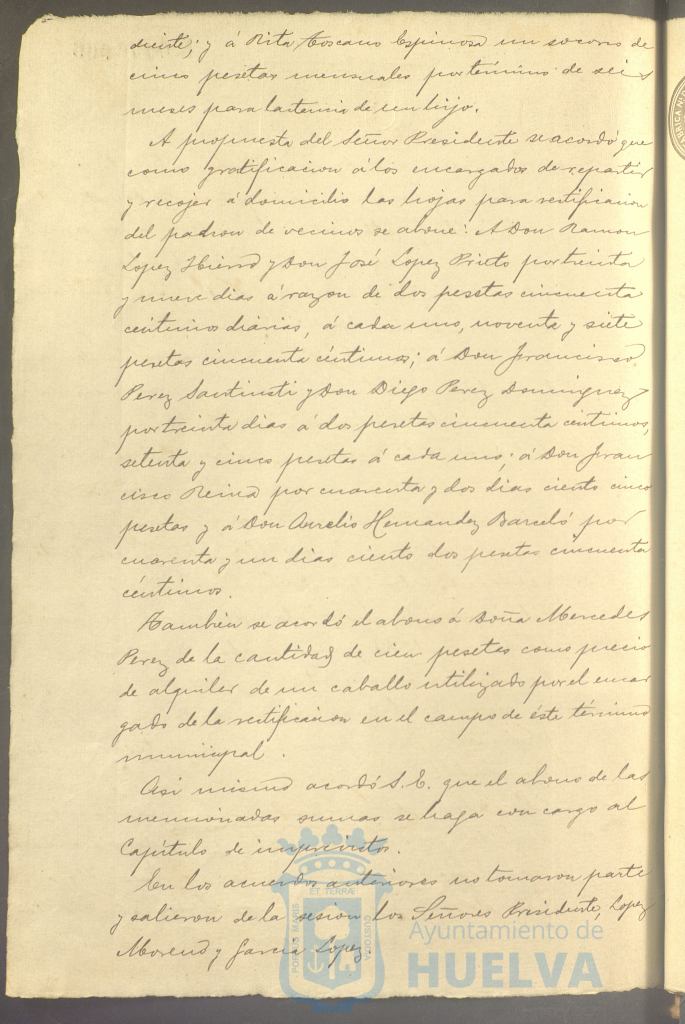 diciste; y á Rita Toscano Espinosa un socorro de
cinco pesetas mensuales por término de seis
meses para lactancia de un hijo.
A propuesta del Señor Presidente se acordó que
como gratificacion á los encargados de repartir
y recojer á domicilio las hojas para rectificacion
del padron de vecinos se abone: A Don Ramon
Lopez Hierro y Don José Lopez Prieto por treinta
y nueve dias á razon de dos pesetas cincuenta
céntimos diarias, á cada uno, noventa y siete
pesetas cincuenta céntimos; á Don Francisco
Perez Santinsti y Don Diego Perez Dominguez
por treinta dias á dos pesetas cincuenta céntimos,
setenta y cinco pesetas á cada uno; á Don Fran
cisco Reina por cuarenta y dos dias ciento cinco
pesetas y á Don Aurelio Hernandez Barceló por
cuarenta y un dias ciento dos pesetas cincuenta
céntimos.
Tambien se acordó el abono á Doña Mercedes
Perez de la cantidad de cien pesetas como precio
de alquiler de un caballo utilizado por el encar
gado de la rectificacion en el campo de éste término
municipal.
Asi mismo acordó S.E. que el abono de las
mencionadas sumas se haga con cargo al
Capítulo de imprevistos.
En los acuerdos anteriores no tomaron parte
y salieron de la sesion los Señores Presidente, Lopez
Moreno y Garcia Lopez.
PORTUS MARIS ET TERRAE CUSTODIA
Ayuntamiento de
HUELVA